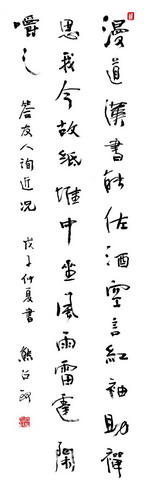 漫道漢書能佐酒空言紅袖助禪
思我今故紙堆中坐風雨雷霆閑
嚼之
答友人詢近況 戊子仲夏書 熊召政